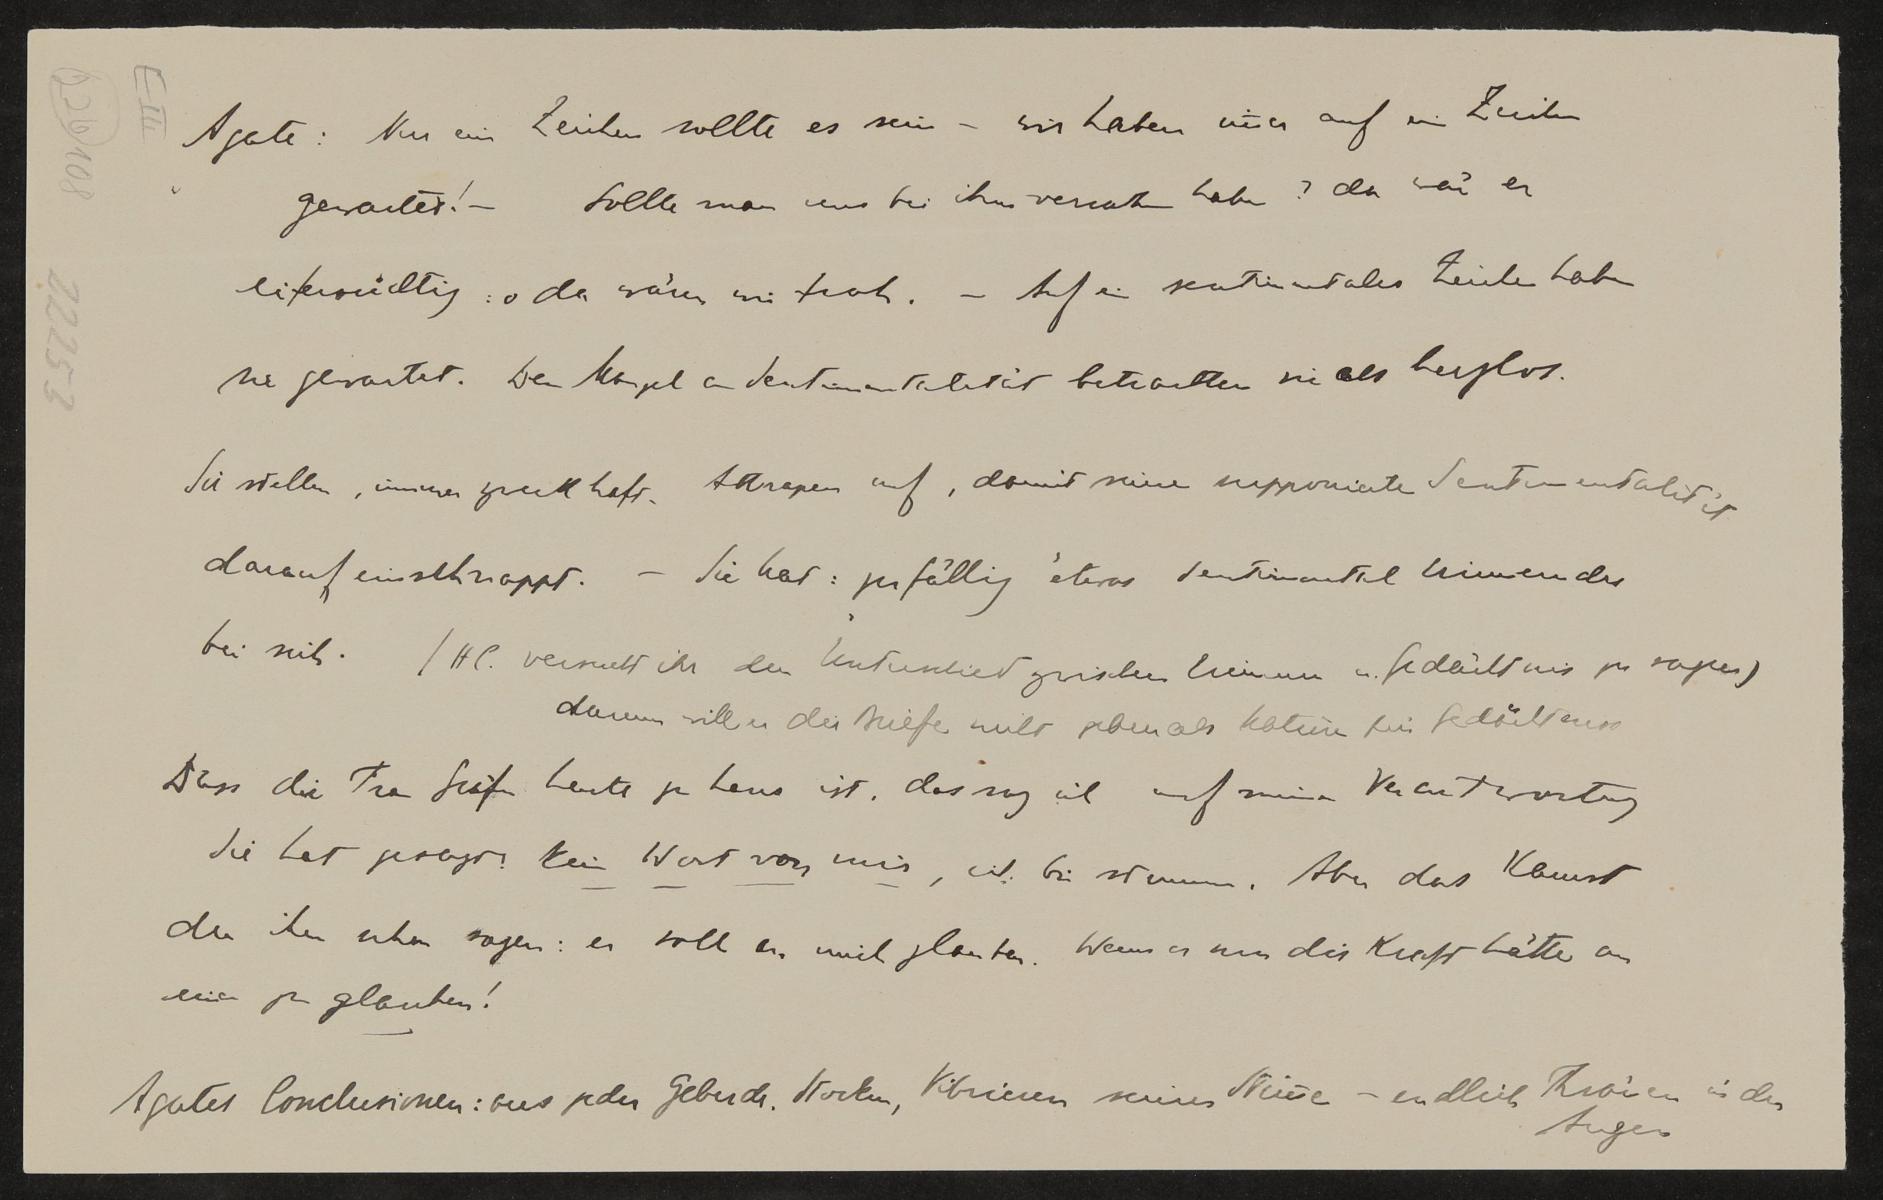 E III
226 108
22253
Agate: Nur ein Zeichen sollte es sein – wir haben im̄er auf ein Zeichen
gewartet! – Sollte man uns bei ihm verraten haben? da wär er
eifersüchtig: o da wären wir froh. – Auf ein sentimentales Zeichen haben
sie gewartet. Den Mangel an Sentimentalität betrachten sie als herzlos.
Sie stellen, immer zweckhaft. Attrapen auf, damit seine supponierte Sentimentalität
darauf einschnappt. – Sie hat: gefällig etwas Sentimental
bei sich. (HC. versucht ihr den Unterschied zwischen u. Gedächtnis zu sagen)
darum will er die Briefe nicht geben als für Gedächtniss
Dass die Frau Gräfin heute zu haus ist, das sag ich auf meine Verantwortung
Sie hat gesagt: Kein Wort von mir, ich bin stumm. Aber das kannst
du ihm schon sagen: er soll an mich glauben. Wenn er nur die Kraft hätte an
mich zu glauben!
Agates Conclusionen: aus jeder Geberde. Stocken, Vibrieren seiner Stim̄e – endlich Thränen in den
Augen